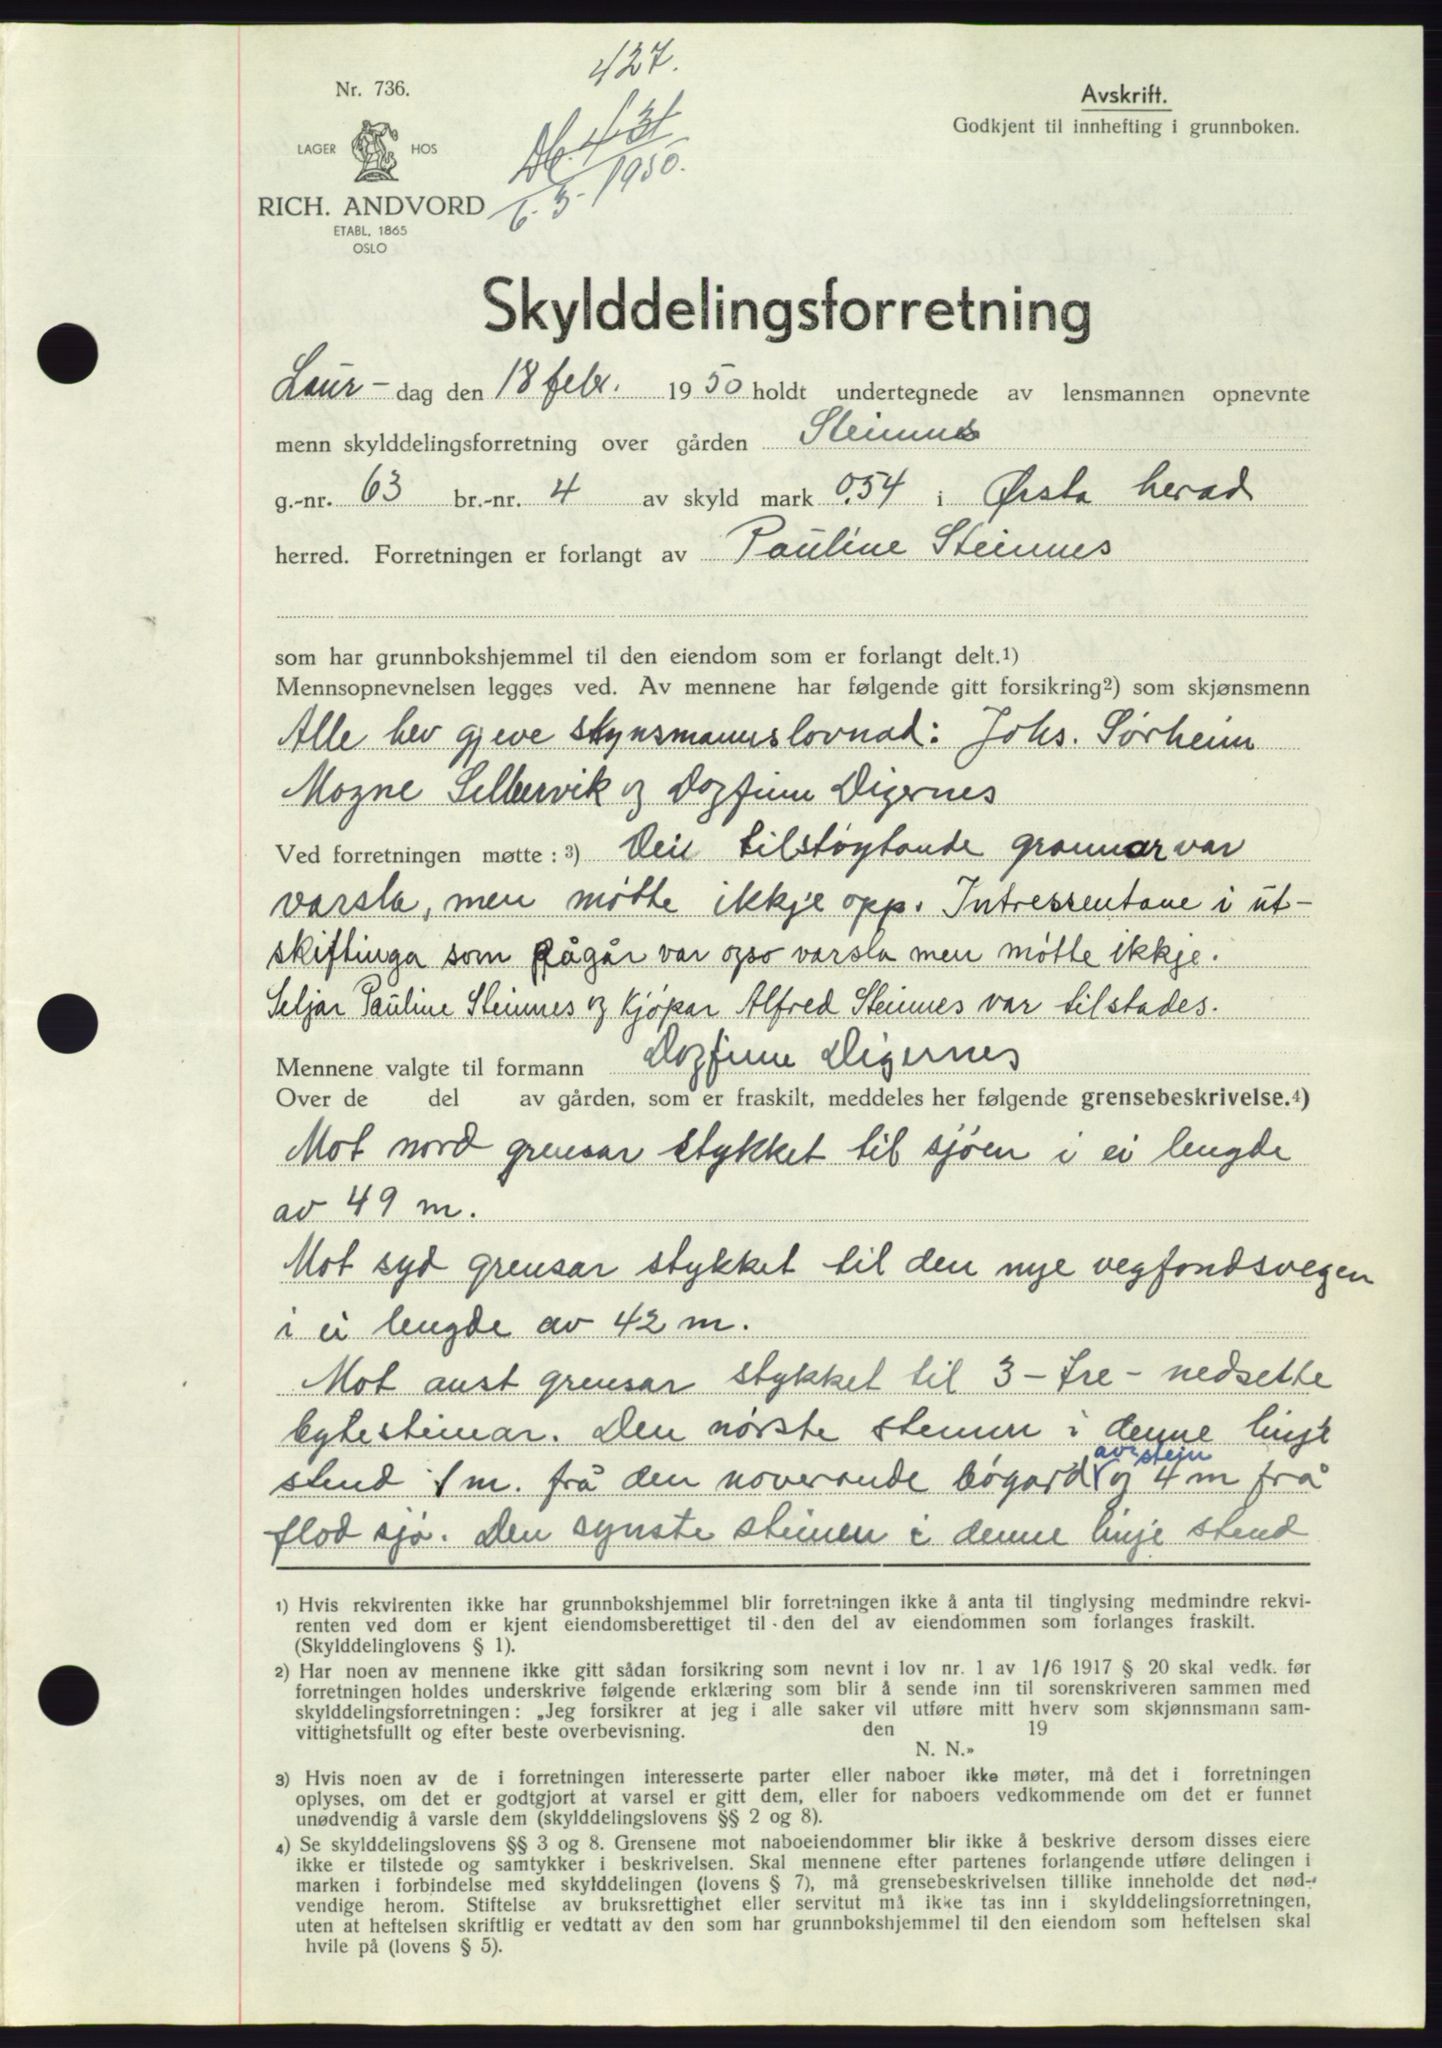 427.
Nr. 736.
Avskrift.
Godkjent til innhefting i grunnboken.
Db. 431
6-3-1950.
LAGER HOS
RICH. ANDVORD
ETABL. 1865
OSLO
Skylddelingsforretning
Laur- dag den 18 febr. 1950 holdt undertegnede av lensmannen opnevnte
menn skylddelingsforretning over gården Steinnes
g.-nr. 63 br.-nr. 4 av skyld mark 0,54 i Ørsta herad
herred. Forretningen er forlangt av Pauline Steinnes
som har grunnbokshjemmel til den eiendom som er forlangt delt.1)
Mennsopnevnelsen legges ved. Av mennene har følgende gitt forsikring2) som skjønsmenn
Alle hev gjeve skynsmannslovnad: Johs. Sørheim
Mogne Sellervik og Dagfinn Digernes
Ved forretningen møtte: 3) Dei tilstøytande grannar var
varsla, men møtte ikkje opp. Intressentane i ut-
skiftinga som pågår var ogso varsla men møtte ikkje.
Seljar Pauline Steinnes og kjøpar Alfred Steinnes var tilstades.
Mennene valgte til formann Dagfinn Digernes
Over de del av gården, som er fraskilt, meddeles her følgende grensebeskrivelse.4)
Mot nord grensar stykket til sjøen i ei lengde
av 49 m.
Mot syd grensar stykket til den nye vegfondsvegen
i ei lengde av 42 m.
Mot aust grensar stykket til 3 - tre - nedsette
bytesteinar. Den nørste steinen i denne linje
stend 1 m. frå den noverande bøgard av stein og 4 m frå
flod sjø. Den synste steinen i denne linje stend
1) Hvis rekvirenten ikke har grunnbokshjemmel blir forretningen ikke å anta til tinglysing medmindre rekvi-
renten ved dom er kjent eiendomsberettiget til den del av eiendommen som forlanges fraskilt.
(Skylddelinglovens § 1).
2) Har noen av mennene ikke gitt sådan forsikring som nevnt i lov nr. 1 av 1/6 1917 § 20 skal vedk. før
forretningen holdes underskrive følgende erklæring som blir å sende inn til sorenskriveren sammen med
skylddelingsforretningen: „Jeg forsikrer at jeg i alle saker vil utføre mitt hverv som skjønnsmann sam-
vittighetsfullt og efter beste overbevisning. den 19
N. N.»
3) Hvis noen av de i forretningen interesserte parter eller naboer ikke møter, må det i forretningen
oplyses, om det er godtgjort at varsel er gitt dem, eller for naboers vedkommende om det er funnet
unødvendig å varsle dem (skylddelingslovens §§ 2 og 8).
4) Se skylddelingslovens §§ 3 og 8. Grensene mot naboeiendommer blir ikke å beskrive dersom disses eiere
ikke er tilstede og samtykker i beskrivelsen. Skal mennene efter partenes forlangende utføre delingen i
marken i forbindelse med skylddelingen (lovens § 7), må grensebeskrivelsen tillike inneholde det nød-
vendige herom. Stiftelse av bruksrettighet eller servitut må ikke tas inn i skylddelingsforretningen,
uten at heftelsen skriftlig er vedtatt av den som har grunnbokshjemmel til den eiendom som heftelsen skal
hvile på (lovens § 5).